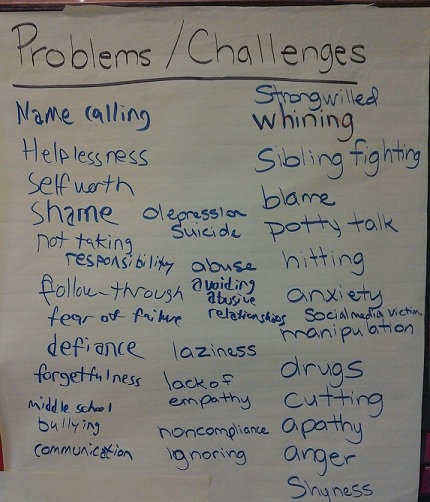 Problems / Challenges
Name calling
Helplessness
Self worth
Shame
not taking
responsibility
follow-through
fear of failure
defiance
forgetfulness
middle school
bullying
communication
depression
suicide
abuse
avoiding
abusive
relationships
laziness
lack of
empathy
noncompliance
ignoring
Strongwilled
whining
Sibling fighting
blame
potty talk
hitting
anxiety
Social media victim
manipulation
drugs
cutting
apathy
anger
Shyness